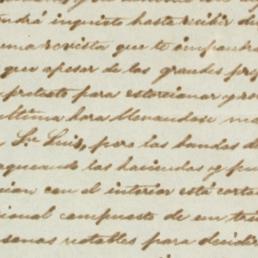 tendrá inquieto hasta recibir de
una revista que te
que apesar de las grandes pro
protesto para estorcionar y ro
ultima hora llenandose
n Sn. Luis, pero las bandas de
aqueando las haciendas y
cion con el interior está corta
cional compuesto de un tri
sonas notables para decidir